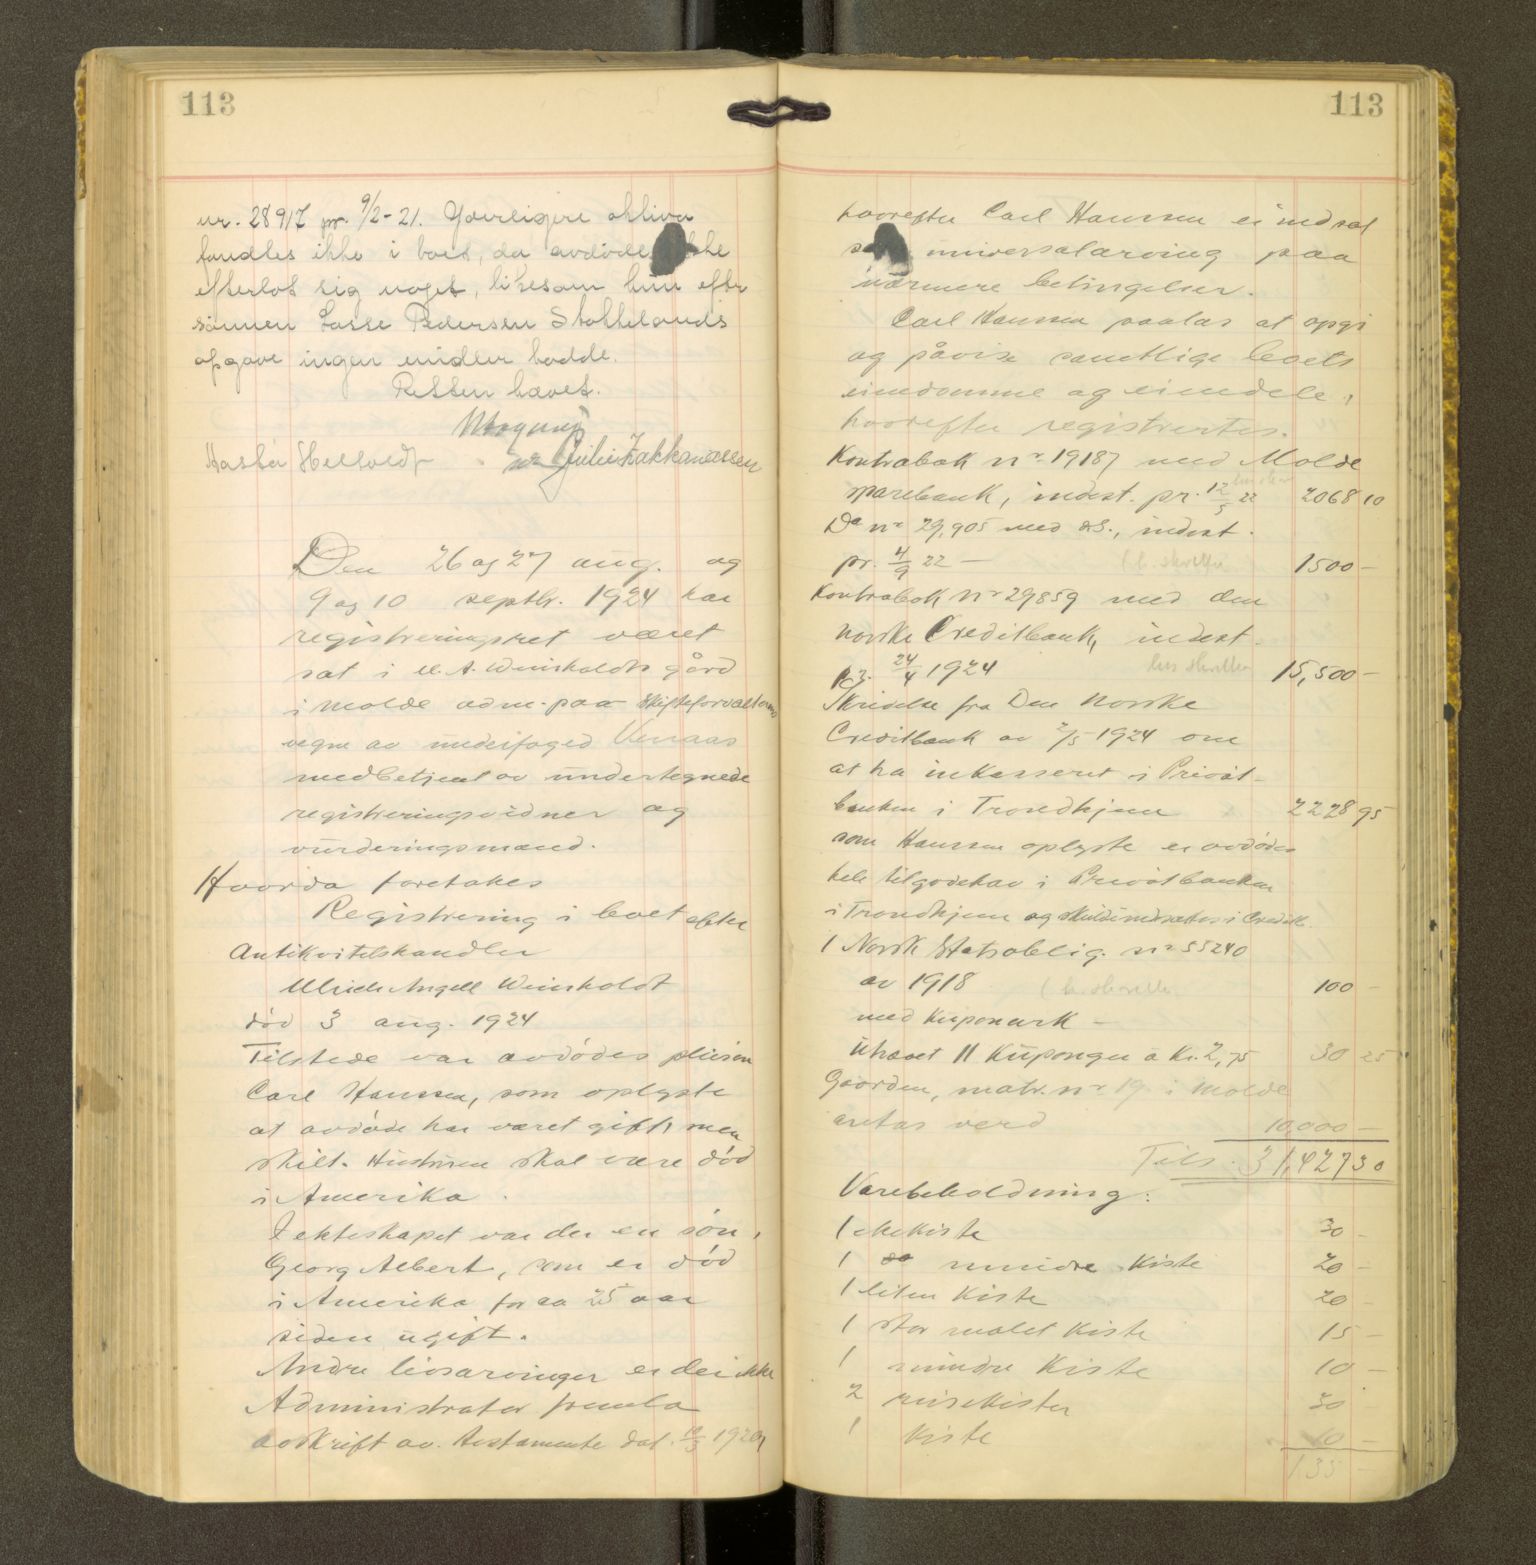 113
nr. 28917 pr. 9/2-21. Yderligere aktiva
fandtes ikke i boet, da avdøde ikke
efterlot sig noget, likesom hun efter
sönnen Lasse Pedersen Stokkelands
opgave ingen midler hadde.
Retten hævet.
Den 26 og 27 aug. og
9 og 10 septbr. 1924 har
registreringsret været
sat i U. A. Weinholdts gård
i Molde adm. paa skifteforvalterens
vegne av underfoged Venaas
medbetjent av undertegnede
registreringsvidner og
vurderingsmænd.
Hvorda foretokes
Registrering i boet efter
Antikvitetshandler
Ulrich Angell Weinholdt
død 3 aug. 1924
Tilstede var avdødes pleiesön
Carl Hanssen, som oplyste
at avdøde har været gift, men
skilt. Hustruen skal være død
i Amerika.
I ekteskapet var der en søn,
Georg Albert, som er død
i Amerika for ca 25 aar
siden ugift.
Andre livsarvinger er der ikke
Administrator fremla
avskrift av testamente dat. 10/3 1920,
113
hvorefter Carl Hanssen er indsat
som universalarving paa
nærmere betingelser.
Carl Hanssen paalas at opgi
og påvise samtlige boets
eiendomme og eiendele,
hvorefter registrertes.
Kontrabok nr 19187 med Molde
sparebank, indest. pr. 12/5 22 2068 10
Do nr 29,905 med do., indest.
pr. 4/9 22 — 1500 —
Kontrabok nr 29859 med den
norske Creditbank, indest.
pr. 24/4 1924 15,500 —
Skrivelse fra Den Norske
Creditbank av 2/5 1924 om
at ha inkasseret i Privat-
banken i Trondhjem 2228 95
som Hanssen oplyste er avdødes
hele tilgodehav i Privatbanken
i Trondhjem og skulde indsættes i Creditb.
1 Norsk Statsoblig. nr 55240
av 1918 100 —
med kuponark —
Uhævet 11 kuponger a Kr. 2,75 30 25
Gaarden, matr. nr 19 i Molde
antas verd 10,000 —
Tils. 31,427 30
Varebeholdning:
1 ekekiste 30 —
1 do mindre kiste 20 —
1 liten kiste 20 —
1 stor malet kiste 15 —
1 mindre kiste 10 —
2 reisekister 30
1 kiste 10 —
135 —